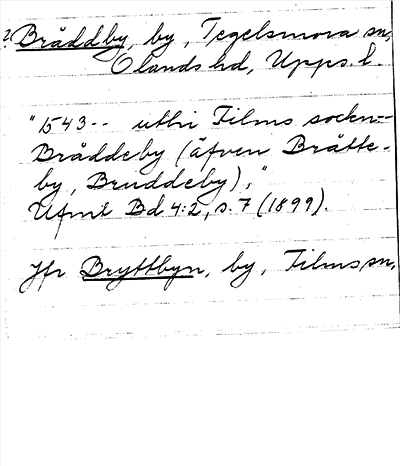 ? Bråddby, by, Tegelsmora sn,
Olands hd, Upps. l.
"1543-- uthi Films sockn--
Bråddeby (äfven Bråtte-
by, Bruddeby),"
Ufmt Bd 4:2, s. 7 (1899).
Jfr Bryttbyn, by, Films sn,